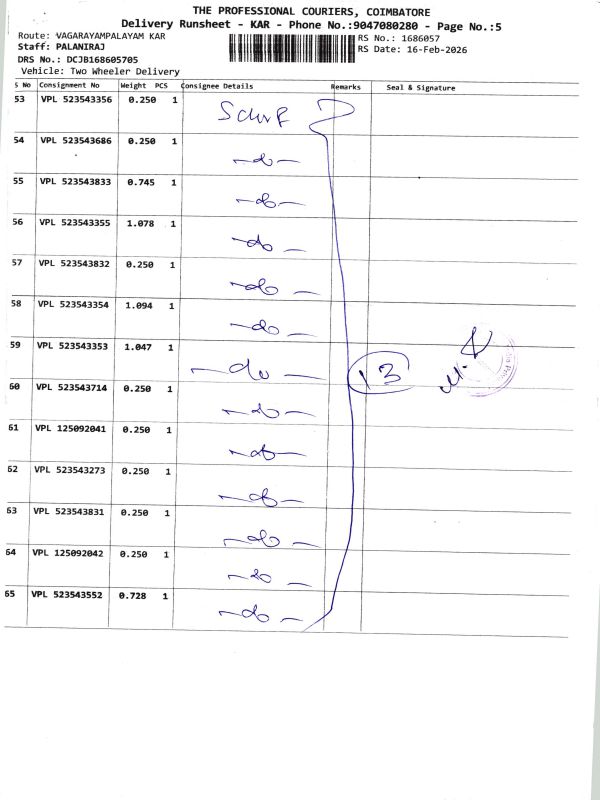 THE PROFESSIONAL COURIERS, COIMBATORE
Delivery Runsheet - KAR - Phone No.:9047080280 - Page No.:5
Route: VAGARAYAMPALAYAM KAR
RS No.: 1686057
Staff: PALANIRAJ
RS Date: 16-Feb-2026
DRS No.: DCJB168605705
Vehicle: Two Wheeler Delivery
S No Consignment No Weight PCS Consignee Details Remarks Seal & Signature
53 VPL 523543356 0.250 1
54 VPL 523543686 0.250 1 -do-
55 VPL 523543833 0.745 1 -do-
56 VPL 523543355 1.078 1 -do-
57 VPL 523543832 0.250 1 -do-
58 VPL 523543354 1.094 1 -do-
59 VPL 523543353 1.047 1 -do- 13
60 VPL 523543714 0.250 1 -do-
61 VPL 125092041 0.250 1 -do-
62 VPL 523543273 0.250 1 -do-
63 VPL 523543831 0.250 1 -do-
64 VPL 125092042 0.250 1 -do-
65 VPL 523543552 0.728 1 -do-